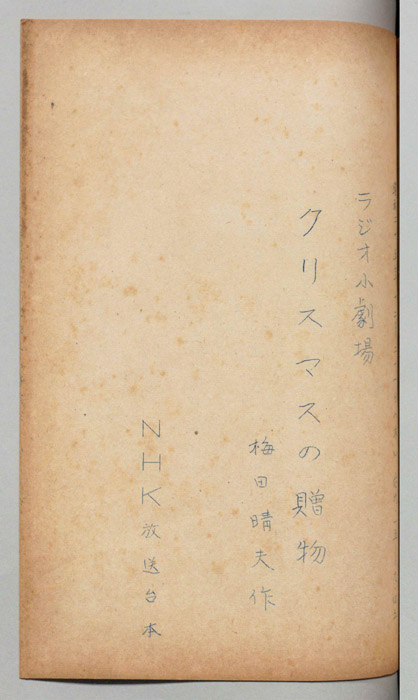 ラジオ小劇場
クリスマスの贈物
梅田晴夫作
NHK放送台本